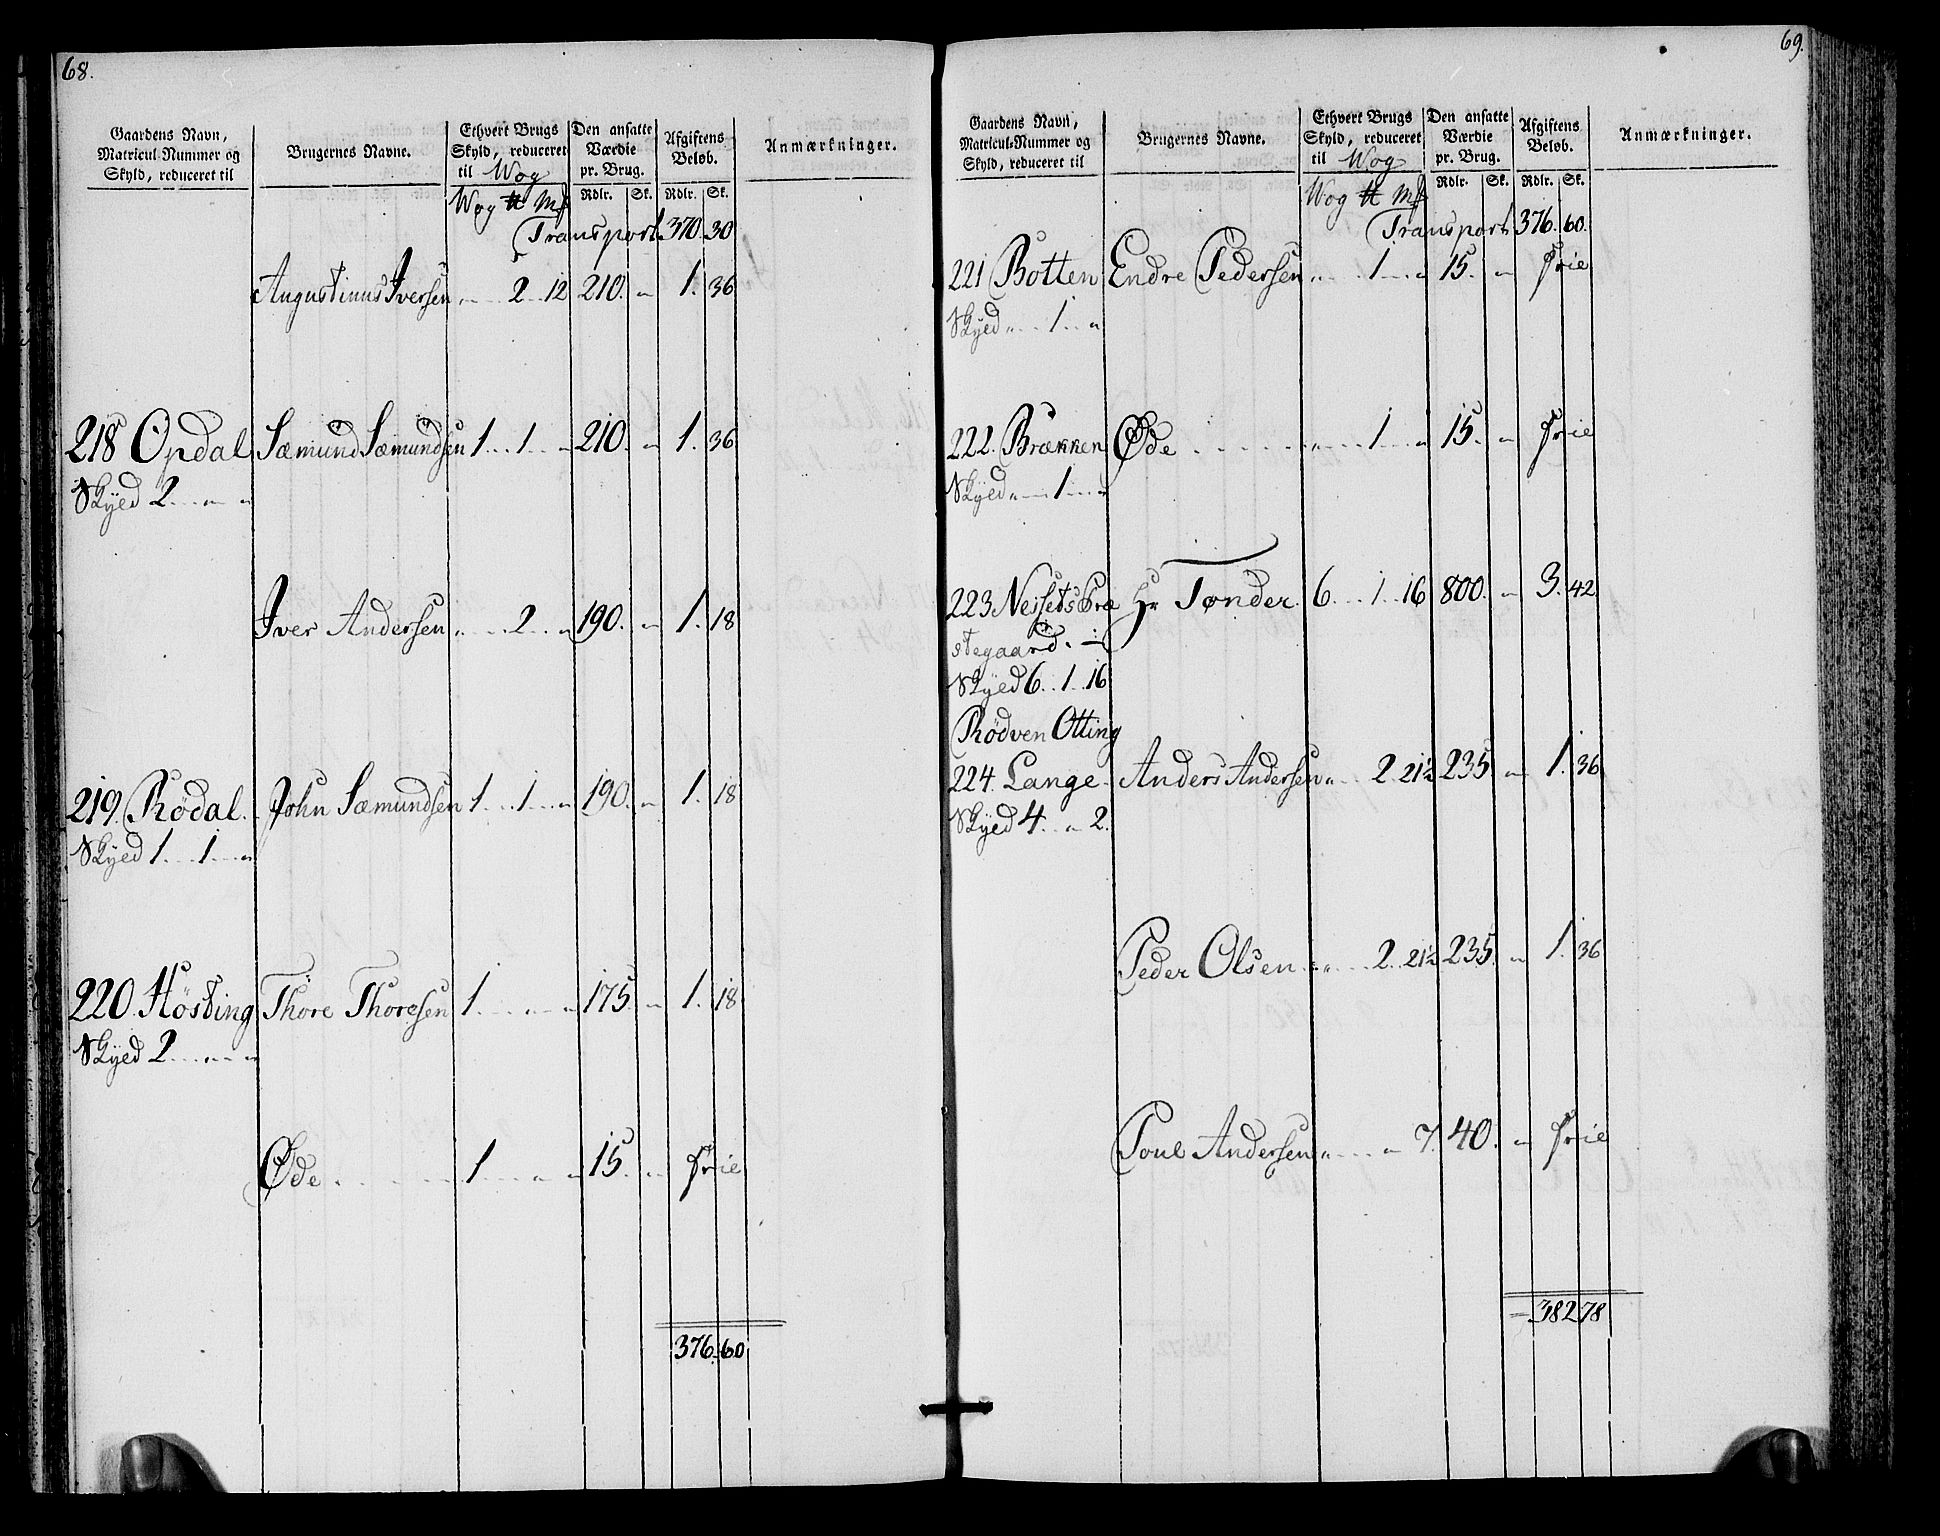 68.
Gaardens Navn, Matricul-Nummer og Skyld, reduceret til
Brugernes Navne.
Ethvert Brugs Skyld, reduceret til Wog
Den ansatte Værdie pr. Brug.
Afgiftens Beløb.
Anmærkninger.
Wog ℔ Mk Rdlr. Sk. Rdlr. Sk.
Transport 370. 30
Augustinus Iversen „ 2 12 210. „ 1. 36
218 Opdal Sæmund Sæmundsen 1 1 „ 210. „ 1. 36
Skyld 2 „ „
Iver Andersen „ 2 „ 190. „ 1. 18
219. Rödal. John Sæmundsen 1 1 „ 190. „ 1. 18
Skyld 1 1 „
220. Hösting Thore Thoresen 1 „ „ 175. „ 1. 18
Skyld 2 „ „
Øde 1 „ „ 15. „ frie
376. 60
69.
Gaardens Navn, Matricul-Nummer og Skyld, reduceret til
Brugernes Navne.
Ethvert Brugs Skyld, reduceret til Wog
Den ansatte Værdie pr. Brug.
Afgiftens Beløb.
Anmærkninger.
Wog ℔ Mk Rdlr. Sk. Rdlr. Sk.
Transport 376. 60.
221 Botten Endre Pedersen „ 1 „ 15. „ frie
Skyld „ 1 „
222. Brækken Øde „ 1 „ 15. „ frie
Skyld „ 1 „
223 Nessets Præ Hr Tønder 6 1 16 800. „ 3. 42
stegaard. —
Skyld 6 1 16
Rödven Otting
224. Lange Anders Andersen „ 2 21½ 235 „ 1. 36
Skyld 4 „ 2.
Peder Olsen „ 2 21½ 235. „ 1. 36
Poul Andersen „ „ 7. 40. „ frie
382 78